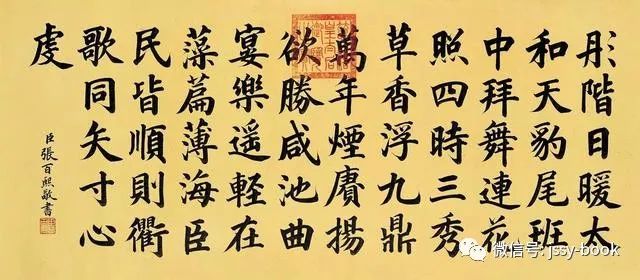 彤階日暖太
和天豹尾班
中拜舞連花
照四時三秀
草香浮九鼎
萬年煙賡揚
欲勝咸池曲
宴樂遥輕在
藻篇薄海臣
民皆順則衢
歌同矢寸心
虔
臣張百熙敬書
微信号: jssy-book